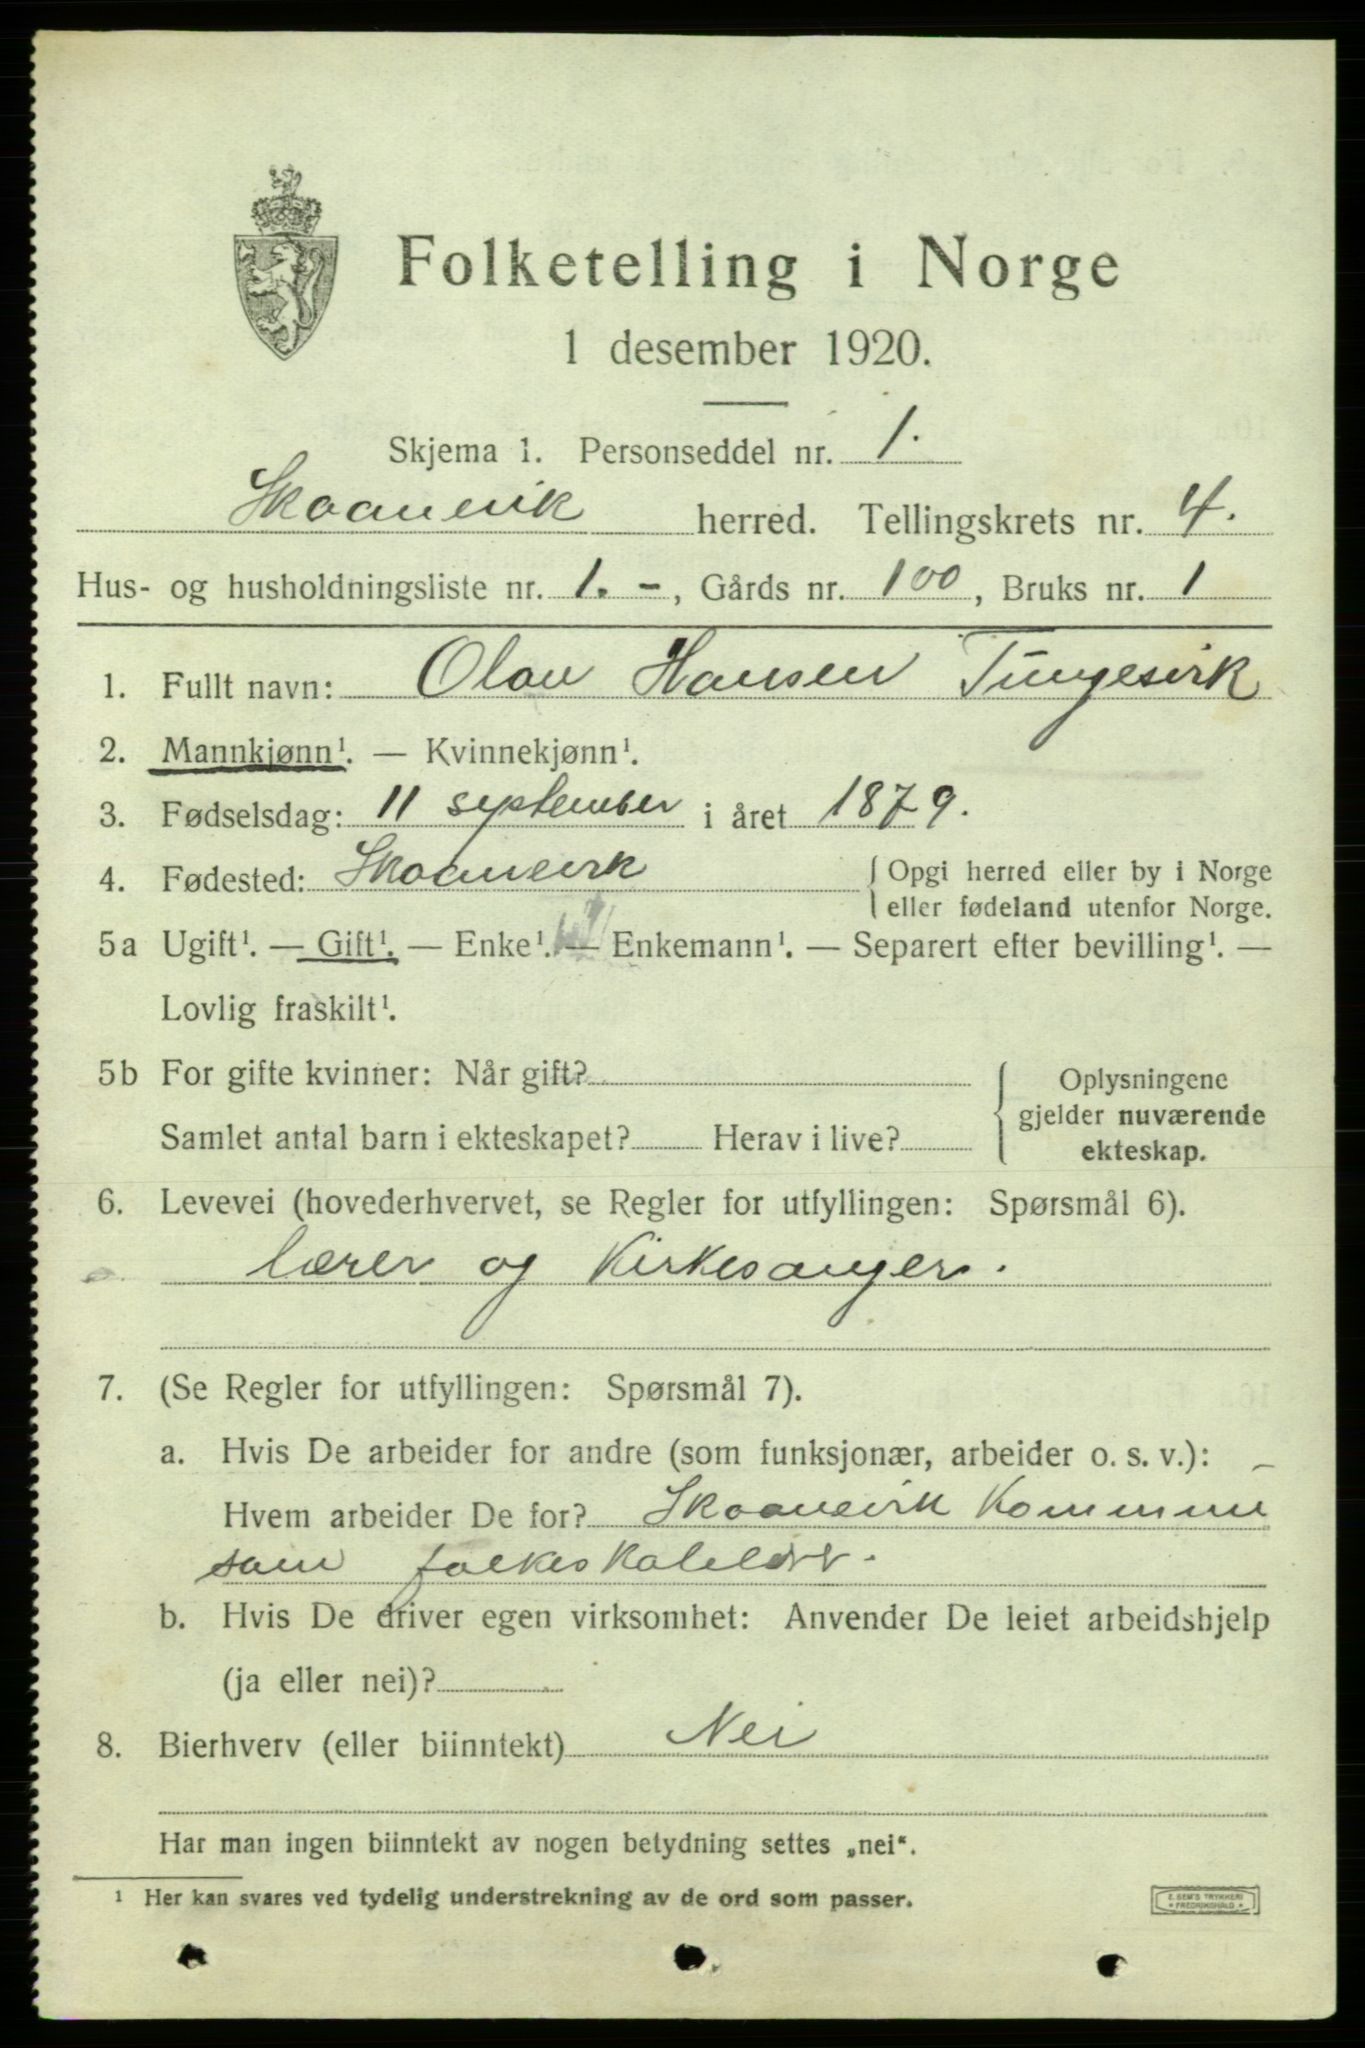 Folketelling i Norge
1 desember 1920.
Skjema 1. Personseddel nr. 1.
Skaanevik herred. Tellingskrets nr. 4.
Hus- og husholdningsliste nr. 1. -, Gårds nr. 100, Bruks nr. 1
1. Fullt navn: Olav Hansen Tungesvik
2. Mannkjønn¹. — Kvinnekjønn¹.
3. Fødselsdag: 11 september i året 1879.
4. Fødested: Skaanevik { Opgi herred eller by i Norge
eller fødeland utenfor Norge.
5a Ugift¹. — Gift¹. — Enke¹. — Enkemann¹. — Separert efter bevilling¹. —
Lovlig fraskilt¹.
5b For gifte kvinner: Når gift?
Samlet antal barn i ekteskapet? Herav i live?
{ Oplysningene
gjelder nuværende
ekteskap.
6. Levevei (hovederhvervet, se Regler for utfyllingen: Spørsmål 6).
lærer og Kirkesanger.
7. (Se Regler for utfyllingen: Spørsmål 7).
a. Hvis De arbeider for andre (som funksjonær, arbeider o. s. v.):
Hvem arbeider De for? Skaanevik Kommune
som folkeskolelærer.
b. Hvis De driver egen virksomhet: Anvender De leiet arbeidshjelp
(ja eller nei)?
8. Bierhverv (eller biinntekt) Nei
Har man ingen biinntekt av nogen betydning settes „nei“.
¹ Her kan svares ved tydelig understrekning av de ord som passer.
E. SEM'S TRYKKERI
* FREDRIKSHALD *